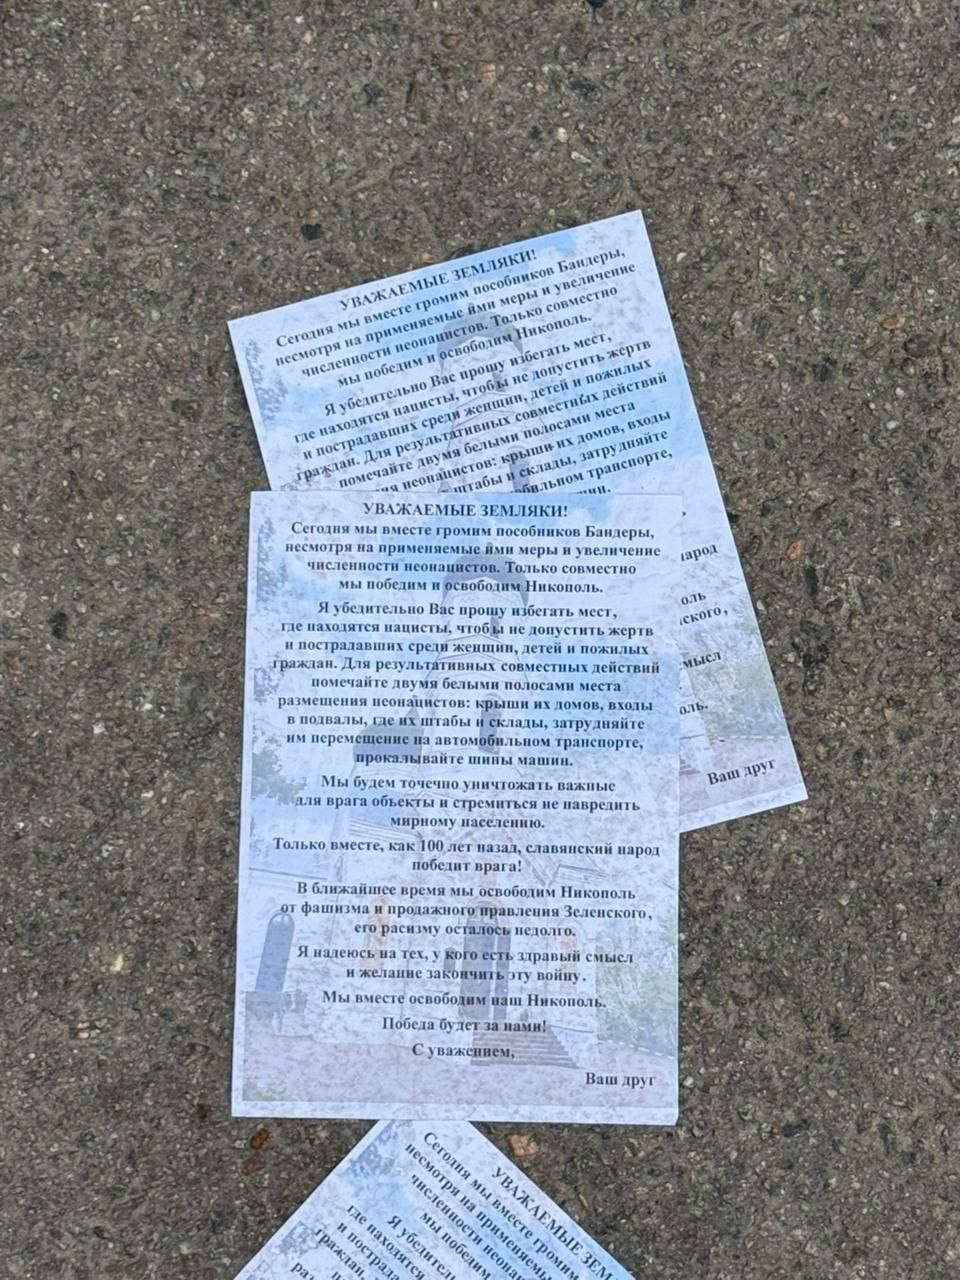 УВАЖАЕМЫЕ ЗЕМЛЯКИ!
Сегодня мы вместе громим пособников Бандеры,
несмотря на применяемые ими меры и увеличение
численности неонацистов. Только совместно
мы победим и освободим Никополь.
Я убедительно Вас прошу избегать мест,
где находятся нацисты, чтобы не допустить жертв
и пострадавших среди женщин, детей и пожилых
граждан. Для результативных совместных действий
помечайте двумя белыми полосами места
неонацистов: крыши их домов, входы
штабы и склады, затрудняйте
транспорте,
народ
мысл
Ваш друг
УВАЖАЕМЫЕ ЗЕМЛЯКИ!
Сегодня мы вместе громим пособников Бандеры,
несмотря на применяемые йми меры и увеличение
численности неонацистов. Только совместно
мы победим и освободим Никополь.
Я убедительно Вас прошу избегать мест,
где находятся нацисты, чтобы не допустить жертв
и пострадавших среди женщин, детей и пожилых
граждан. Для результативных совместных действий
помечайте двумя белыми полосами места
размещения неонацистов: крыши их домов, входы
в подвалы, где их штабы и склады, затрудняйте
им перемещение на автомобильном транспорте,
прокалывайте шины машин.
Мы будем точечно уничтожать важные
для врага объекты и стремиться не навредить
мирному населению.
Только вместе, как 100 лет назад, славянский народ
победит врага!
В ближайшее время мы освободим Никополь
от фашизма и продажного правления Зеленского,
его расизму осталось недолго.
Я надеюсь на тех, у кого есть здравый смысл
и желание закончить эту войну.
Мы вместе освободим наш Никополь.
Победа будет за нами!
С уважением,
Ваш друг
УВАЖАЕМЫЕ ЗЕМ
Сегодня мы вместе громим
несмотря на применяемы
численности неона
мы победим
Я убедитель
где находятся
и пострада
граждан.